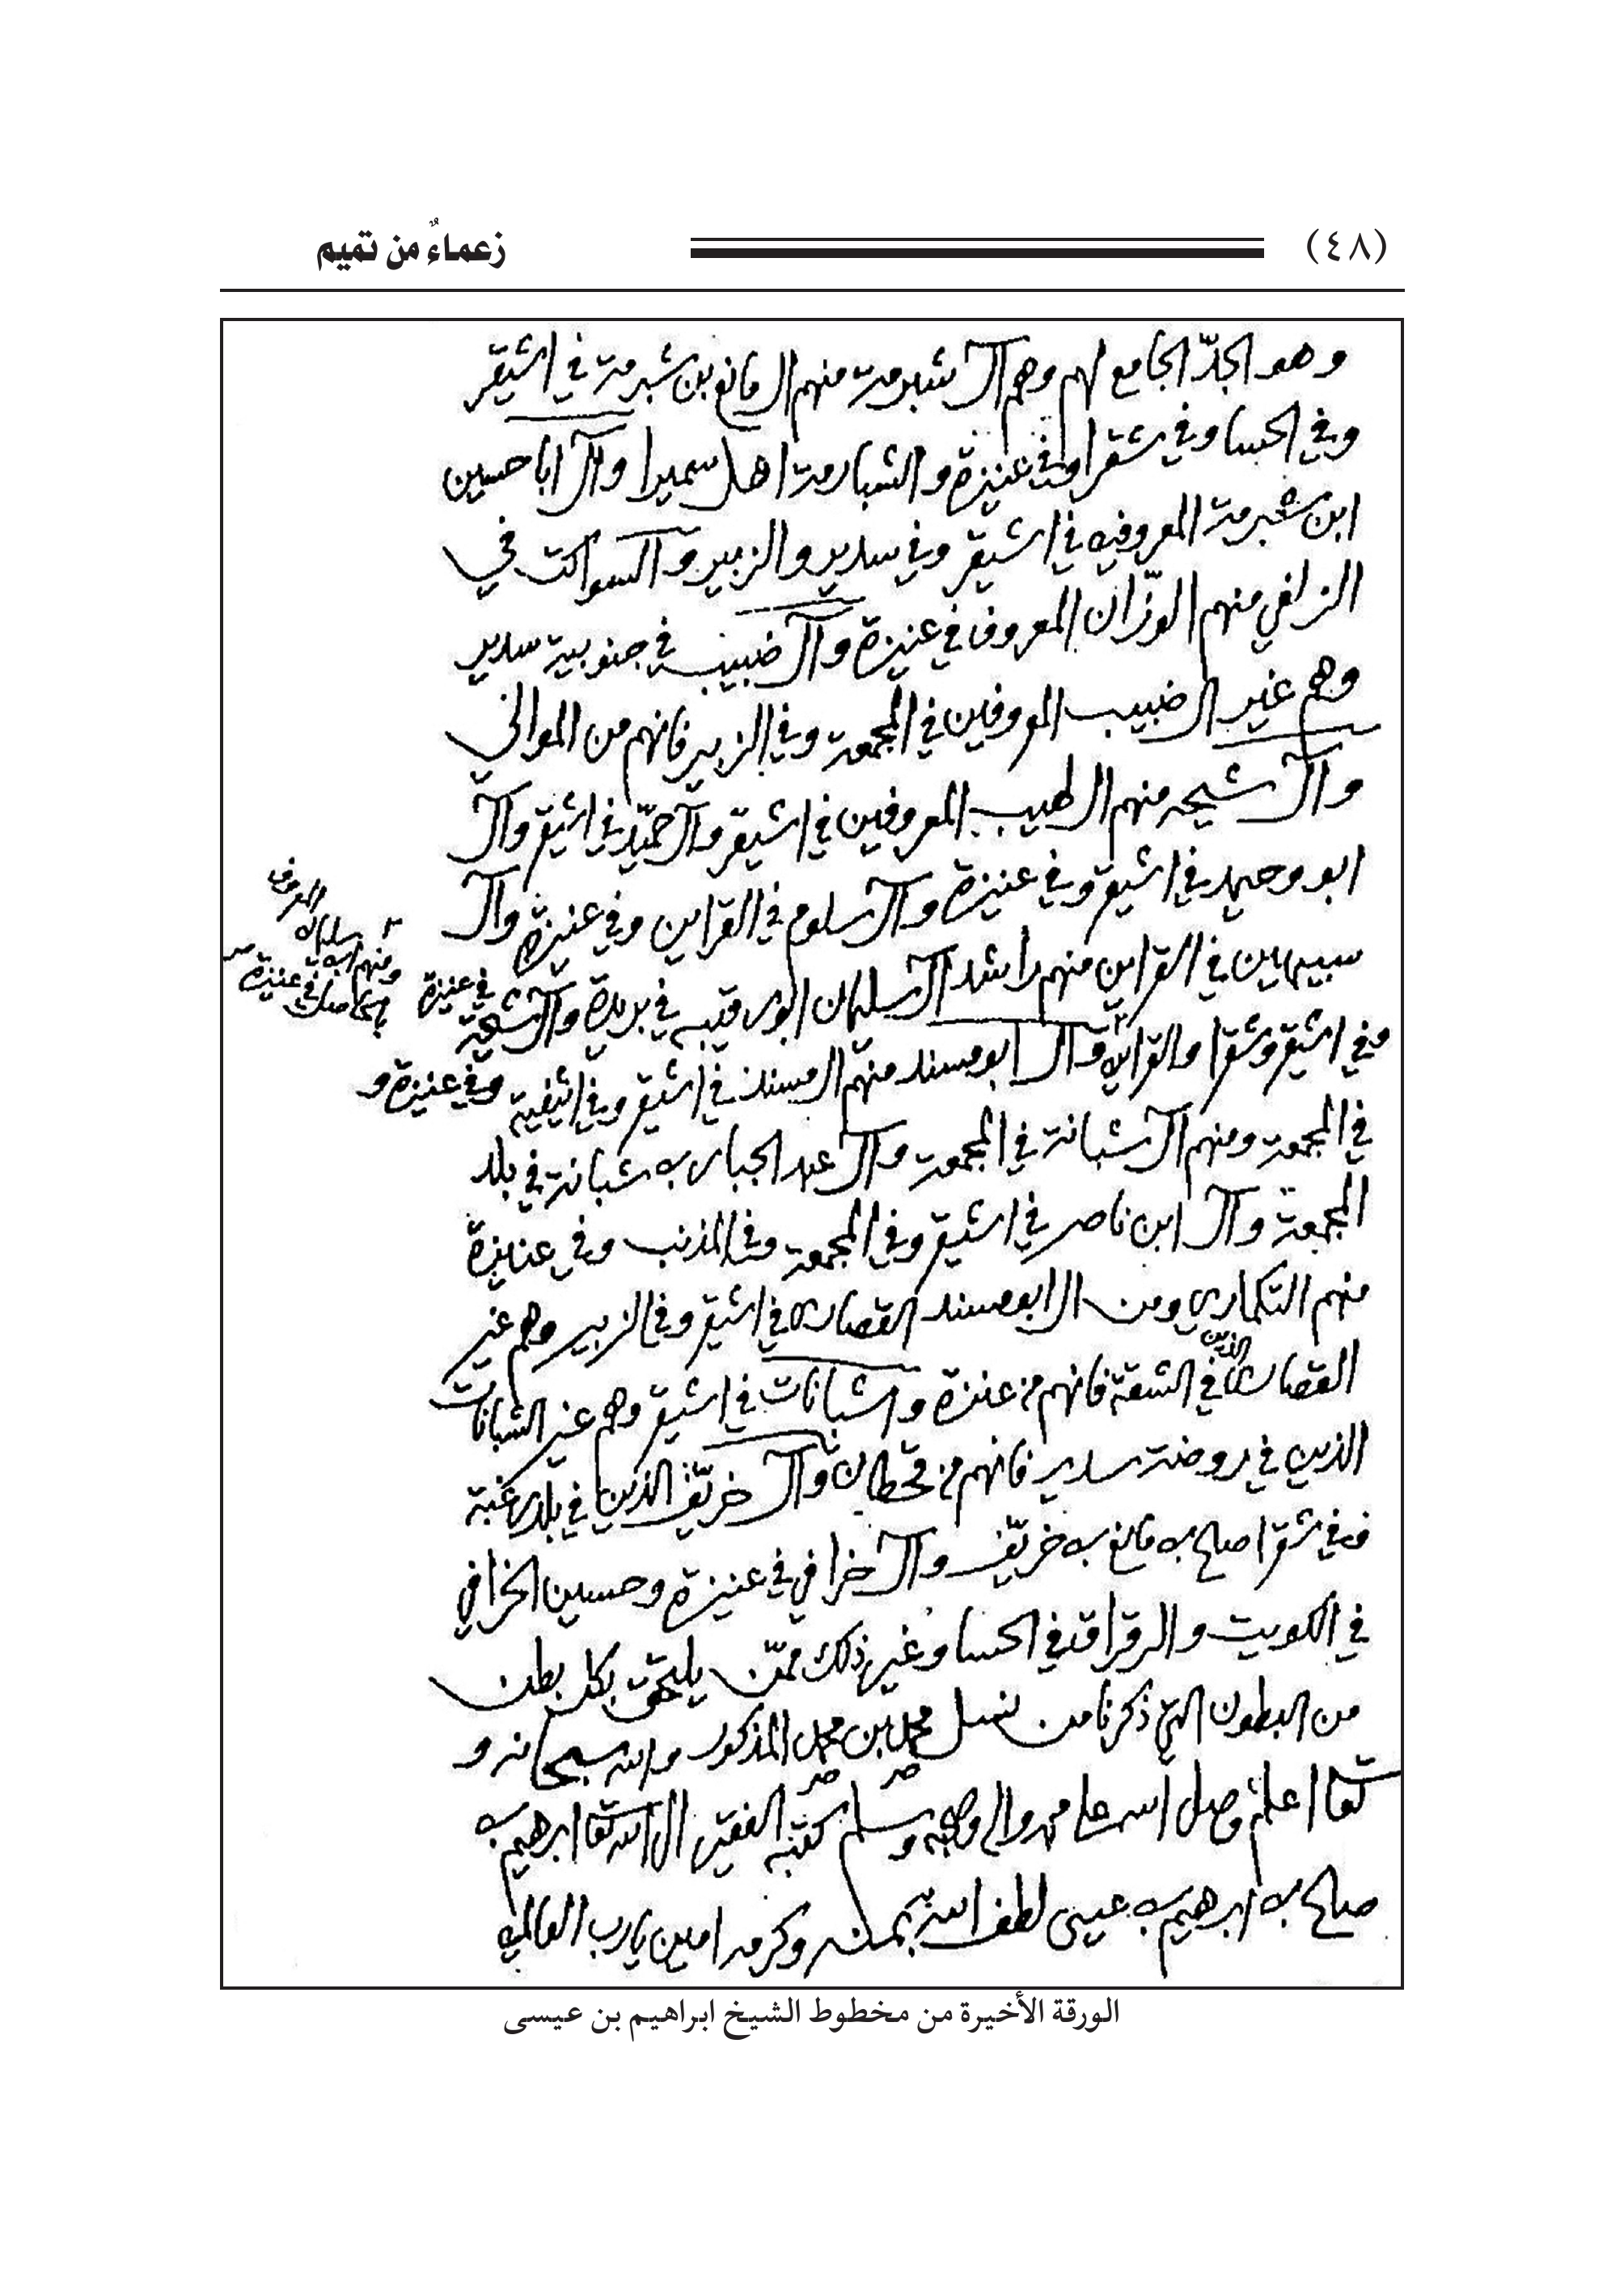 (٤٨)
زعماءٌ من تميم
وهو الجدّ الجامع لهم وهم آل شبرمة منهم ال مانع بن شبرمة في اشيقر
وفي الحسا وفي شقرا وفي عنيزة والشبارمة اهل سميرا وآل ابا حسين
ابن شبرمة المعروفين في اشيقر وفي سدير والزبير والسواكت في
الزلفي منهم الوزّان المعروف في عنيزة وآل ضبيب في جنوبية سدير
وهم غير ال ضبيب المعروفين في المجمعة وفي الزبير فانهم من الموالي
وآل شيحه منهم ال طبيب المعروفين في اشيقر وآل حميّد في اشيقر وآل
ابو وحيمد في اشيقر وفي عنيزة وآل سلوم في القراين وفي عنيزة وآل
سبيهين في القراين منهم راشد آل سليمان في بريدة وآل شيحة في عنيزة
ومنهم سليمان المعروف
في عنيزة
وفي اشيقر وشقرا والقراين وآل ابو مسند منهم ال مسند في اشيقر وفي اثيفية وفي عنيزة و
في المجمعة ومنهم آل شبانة في المجمعة وآل عبد الجبار بن شبانة في بلد
المجمعة وآل ابن ناصر في اشيقر وفي المجمعة وفي المذنب وفي عنيزة
منهم التكارى ومن ال ابو مسند القصارى في اشيقر وفي الزبير وهم غير
القصارى الذين في الشقة فانهم من عنزة والشبانات في اشيقر وهم غير الشبانات
الذين في روضة سدير فانهم من قحطان وآل خريّف الذين في بلد رغبة
وفي شقرا صالح بن مانع بن خريّف وآل خرافي في عنيزة وحسين الخرافي
في الكويت والرقراق في الحسا وغير ذلك ممّن يلتحق بكل بطن
من البطون التي ذكرنا من نسل محمد بن محمد المذكور والله سبحانه و
تعا اعلم وصلى الله على محمد واله وصحبه وسلم كتبه الفقير الى الله تعا ابرهيم بن
صالح بن ابرهيم بن عيسى لطف الله به بمنه وكرمه امين يارب العالمين
الورقة الأخيرة من مخطوط الشيخ ابراهيم بن عيسى